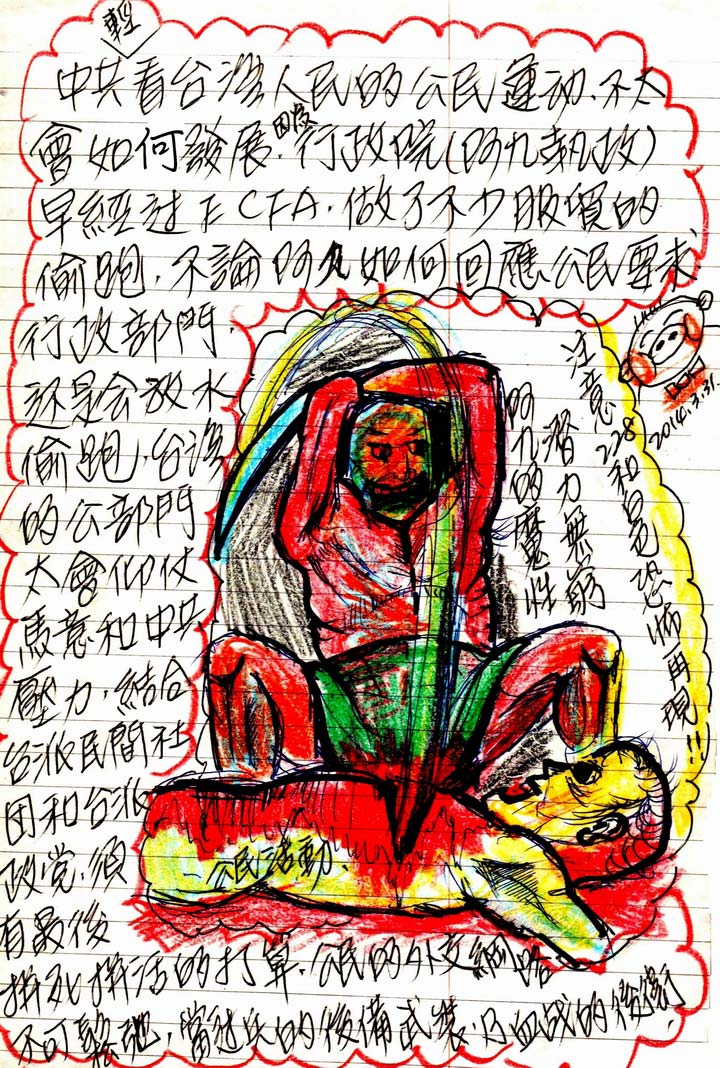 輕
中共看台灣人民的公民運动.不太
會如何發展.因爲行政院(阿九執政)
早經过ECFA.做了不少服貿的
偷跑.不論阿九如何回應公民要求
行政部門.
还是会放水
偷跑.台湾
的公部門
太會仰仗
馬意和中共
壓力.結合
台派民間社
团和台派
政党.須
有最後
拼死拼活的打算.公民的外交網路
不可鬆弛.當过兵的後備武裝.乃血战的後衛
注意228和白色恐怖再現!!
阿九的魔性
潛力無窮
2014.3.31.
公民活動.